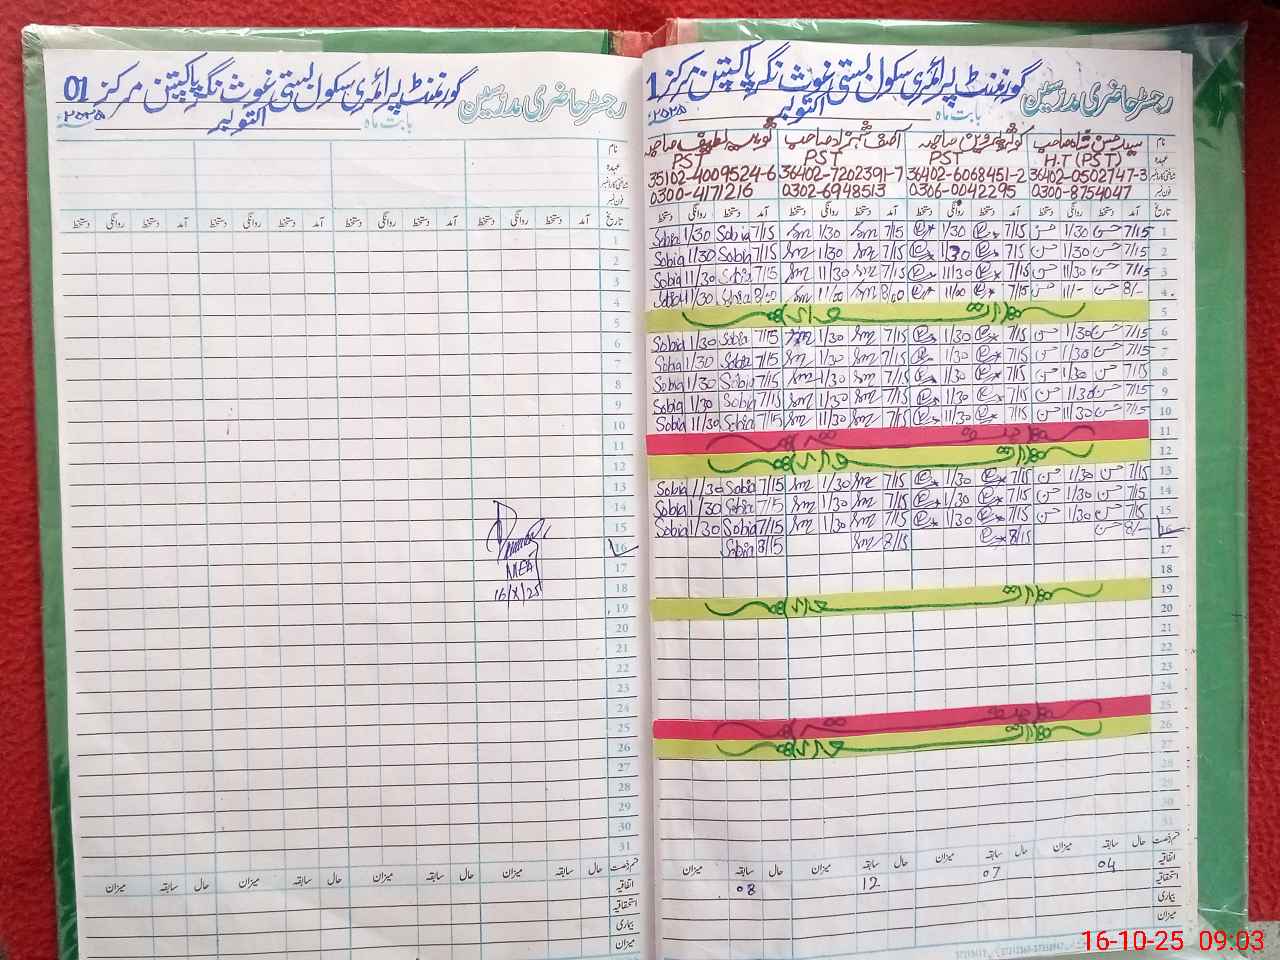 رجسٹر حاضری مدرسین گورنمنٹ پرائمری سکول بستی غوث نگر پاکپتن مرکز 01
بابت ماہ اکتوبر ۲۰۲۵
نام
عہدہ
فون نمبر
تاریخ آمد دستخط روانگی دستخط آمد دستخط روانگی دستخط آمد دستخط روانگی دستخط آمد دستخط روانگی دستخط
1
2
3
4
5
6
7
8
9
10
11
12
13
14
15
16
17
18
19
20
21
22
23
24
25
26
27
28
29
30
31
MEA
16/X/25
حال سابقہ میزان حال سابقہ میزان حال سابقہ میزان حال سابقہ میزان
اتفاقیہ
استحقاقیہ
بیماری
میزان
رجسٹر حاضری مدرسین گورنمنٹ پرائمری سکول بستی غوث نگر پاکپتن مرکز 1
بابت ماہ اکتوبر ۲۰۲۵
نام سید حسن شاہ صاحب کوثر پروین صاحبہ آصف شہزاد صاحب ثوبیہ لطیف صاحبہ
عہدہ H.T (PST) PST PST PST
36402-0502747-3 36402-6068451-2 36402-7202391-7 35102-4009524-6
فون نمبر 0300-8754047 0306-0042295 0302-6948513 0300-4171216
تاریخ آمد دستخط روانگی دستخط آمد دستخط روانگی دستخط آمد دستخط روانگی دستخط آمد دستخط روانگی دستخط
1 7/15 حسن 1/30 حسن 7/15 1/30 7/15 1/30 7/15 Sobia 1/30 Sobia
2 7/15 حسن 1/30 حسن 7/15 1/30 7/15 1/30 7/15 Sobia 1/30 Sobia
3 7/15 حسن 11/30 حسن 7/15 11/30 7/15 11/30 7/15 Sobia 11/30 Sobia
4 8/- حسن 11/- حسن 7/15 11/00 8/00 11/00 8/00 Sobia 11/30 Sobia
5 اتوار
6 7/15 حسن 1/30 حسن 7/15 1/30 7/15 1/30 7/15 Sobia 1/30 Sobia
7 7/15 حسن 1/30 حسن 7/15 1/30 7/15 1/30 7/15 Sobia 1/30 Sobia
8 7/15 حسن 1/30 حسن 7/15 1/30 7/15 1/30 7/15 Sobia 1/30 Sobia
9 7/15 حسن 1/30 حسن 7/15 1/30 7/15 1/30 7/15 Sobia 1/30 Sobia
10 7/15 حسن 11/30 حسن 7/15 11/30 7/15 11/30 7/15 Sobia 11/30 Sobia
11
12 اتوار
13 7/15 حسن 1/30 حسن 7/15 1/30 7/15 1/30 7/15 Sobia 1/30 Sobia
14 7/15 حسن 1/30 حسن 7/15 1/30 7/15 1/30 7/15 Sobia 1/30 Sobia
15 7/15 حسن 1/30 حسن 7/15 1/30 7/15 1/30 7/15 Sobia 1/30 Sobia
16 8/- حسن 8/15 8/15 8/15 Sobia
17
18
19 اتوار
20
21
22
23
24
25
26 اتوار
27
28
29
30
31
حال سابقہ میزان حال سابقہ میزان حال سابقہ میزان حال سابقہ میزان
اتفاقیہ 04 07 12 08
استحقاقیہ
بیماری
میزان
16-10-25 09:03